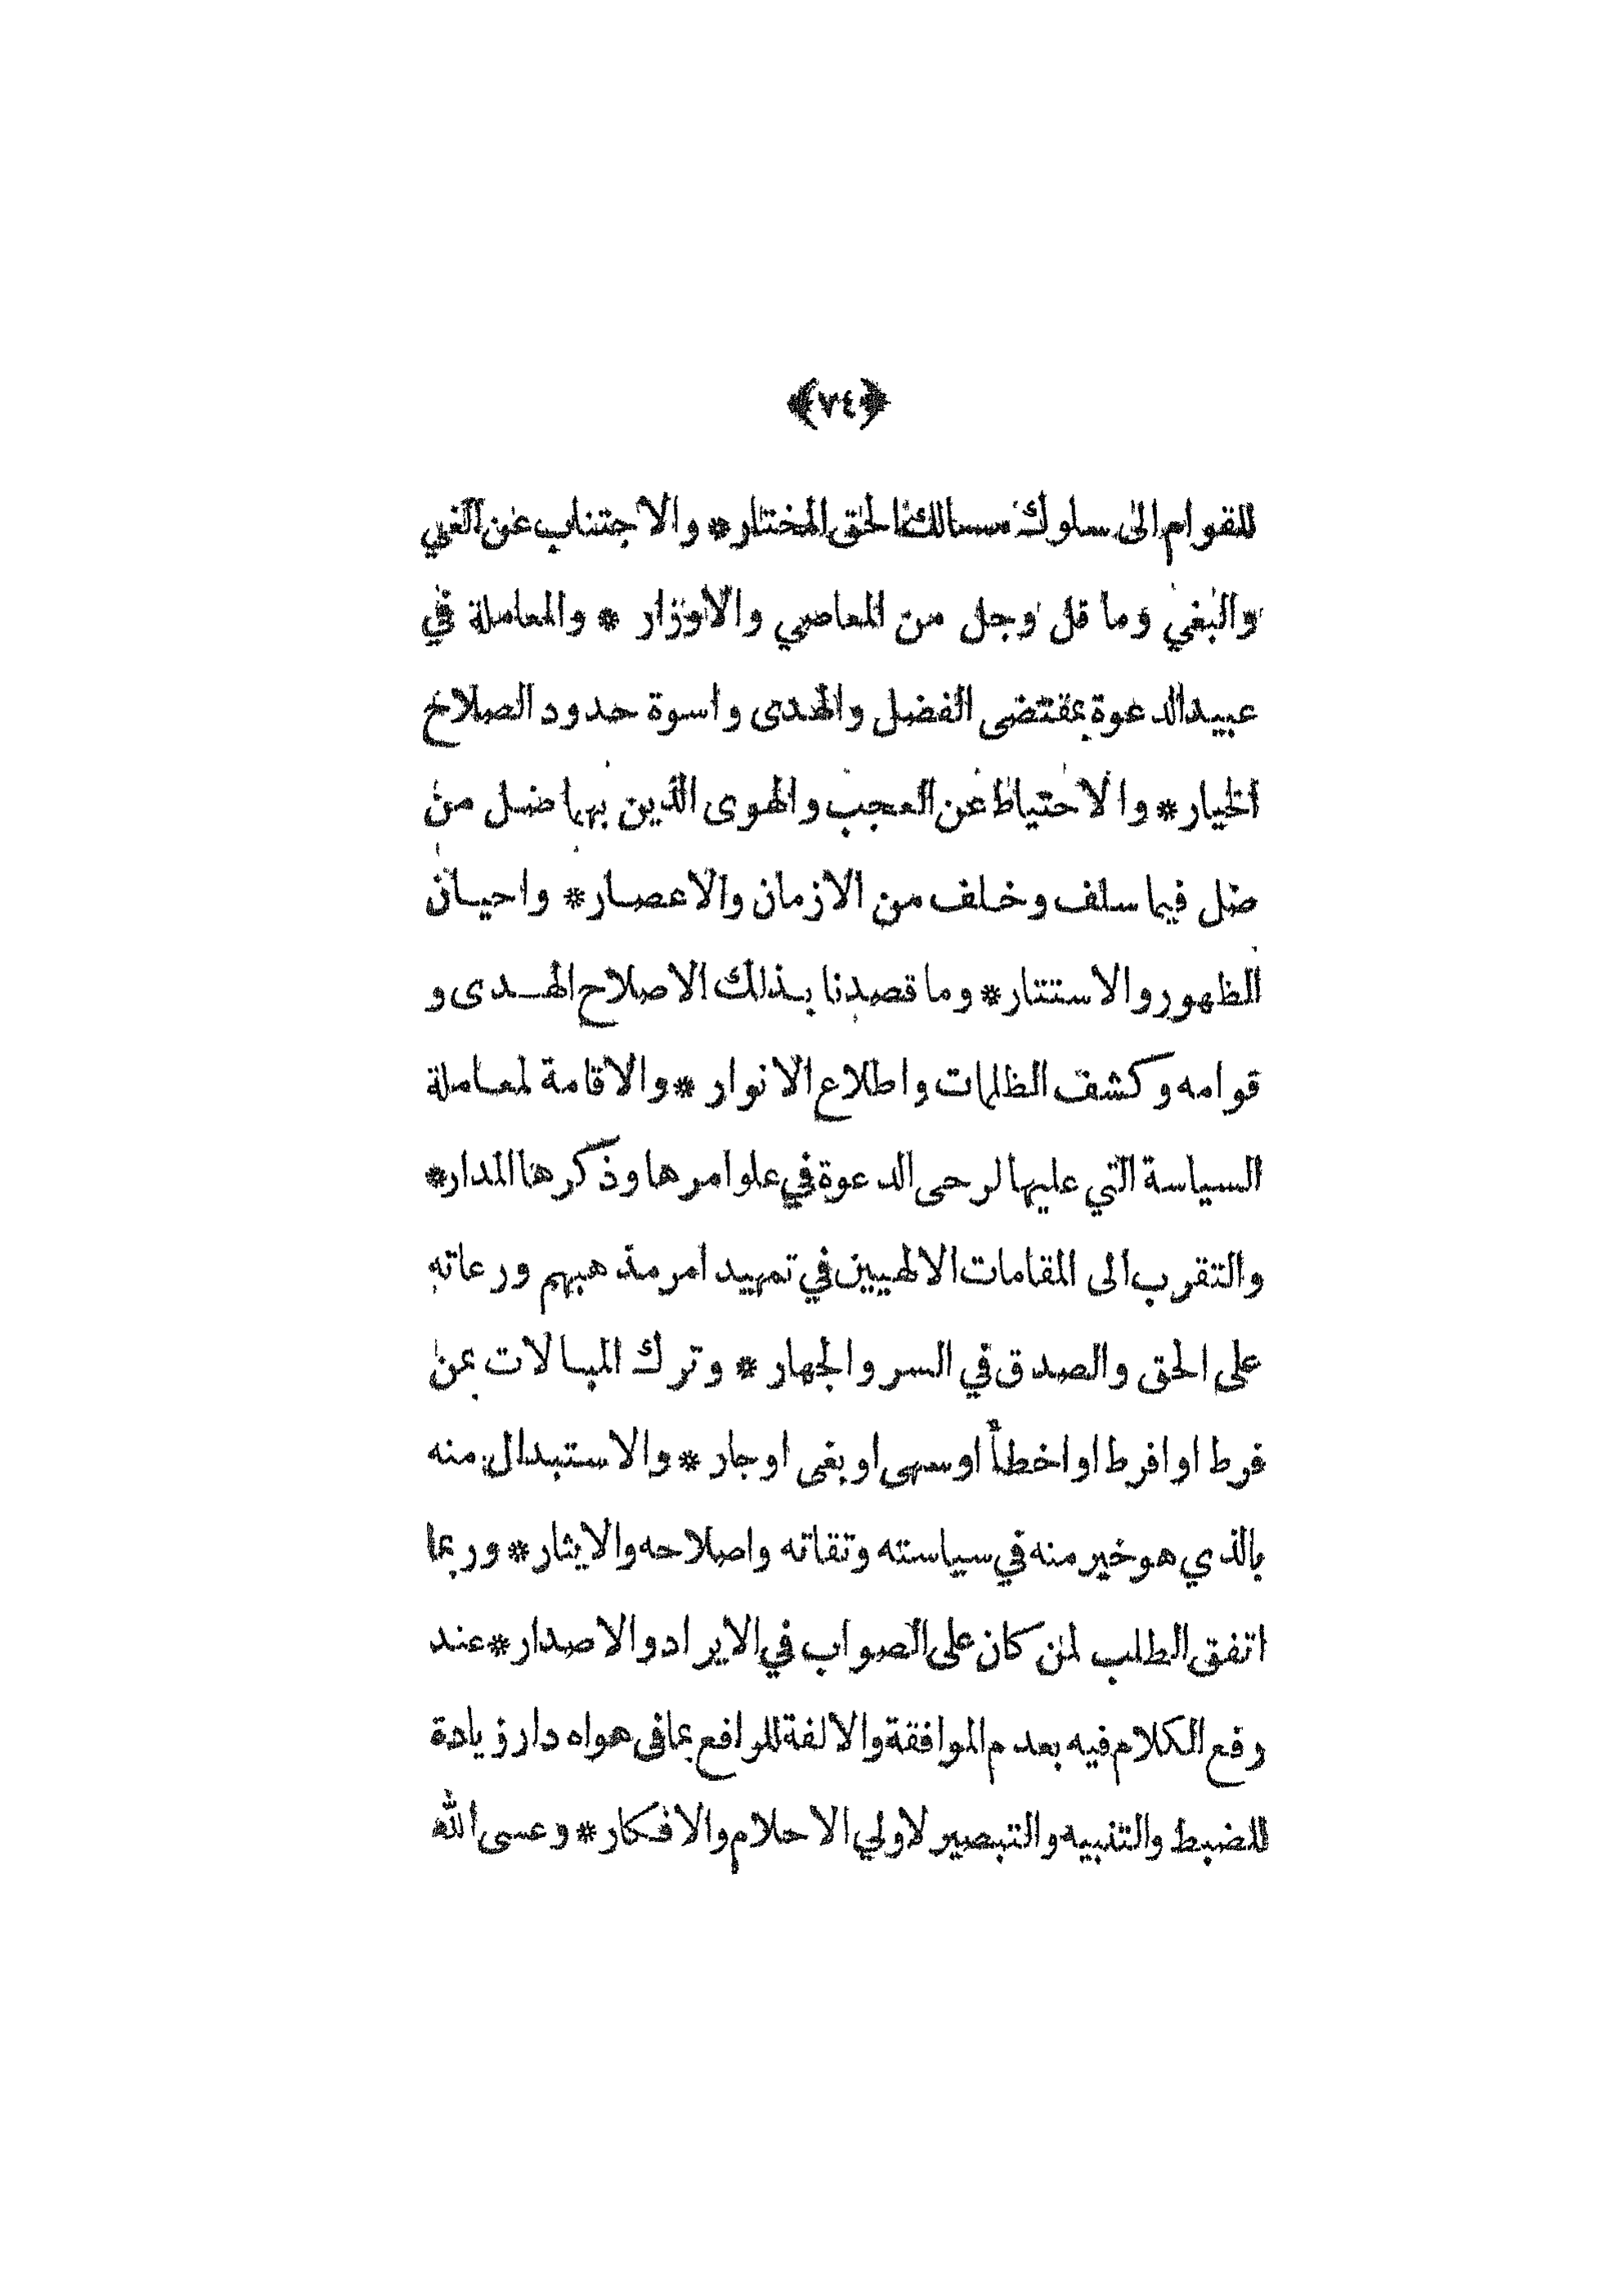 ﴿٧٤﴾
للقوام الى سلوك مسالك الحق المختار * والاجتناب عن الغي
والبغي وما قل وجل من المعاصي والاوزار * والمعاملة في
عبيد الدعوة بمقتضى الفضل والهدى واسوة حدود الصلاح
الخيار * والاحتياط عن العجب والهوى الذين بهما ضل من
ضل فيما سلف وخلف من الازمان والاعصار * واحيان
الظهور والاستتار * وما قصدنا بذلك الاصلاح الهدى و
قوامه وكشف الظلمات واطلاع الانوار * والاقامة لمعاملة
السياسة التي عليها لرحى الدعوة في علو امرها وذكرها المدار *
والتقرب الى المقامات الالهيين في تمهيد امر مذهبهم ورعاته
على الحق والصدق في السر والجهار * وترك المبالات بمن
فرط او افرط او اخطأ او سهى او بغى او جار * والاستبدال منه
بالذي هو خير منه في سياسته وتقاته واصلاحه والايثار * وربما
اتفق الطلب لمن كان على الصواب في الايراد والاصدار * عند
رفع الكلام فيه بعدم الموافقة والالفة للرافع بما فى هواه دار زيادة
للضبط والتنبيه والتبصير لاولي الاحلام والافكار * وعسى الله